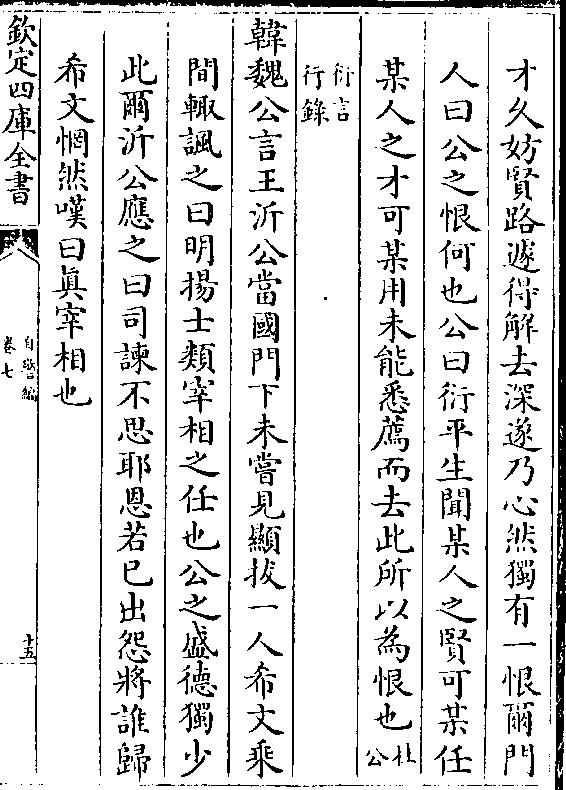 才久妨賢路遽得解去深遂乃心然獨有一恨爾門
人曰公之恨何也公曰衍平生聞某人之賢可某任
某人之才可某用未能悉薦而去此所以為恨也杜公
衍言行錄
韓魏公言王沂公當國門下未嘗見顯拔一人希文乘
間輙諷之曰明揚士類宰相之任也公之盛德獨少
此爾沂公應之曰司諫不思耶恩若已出怨將誰歸
希文惘然嘆曰真宰相也
欽定四庫全書
自警編
卷七
十五